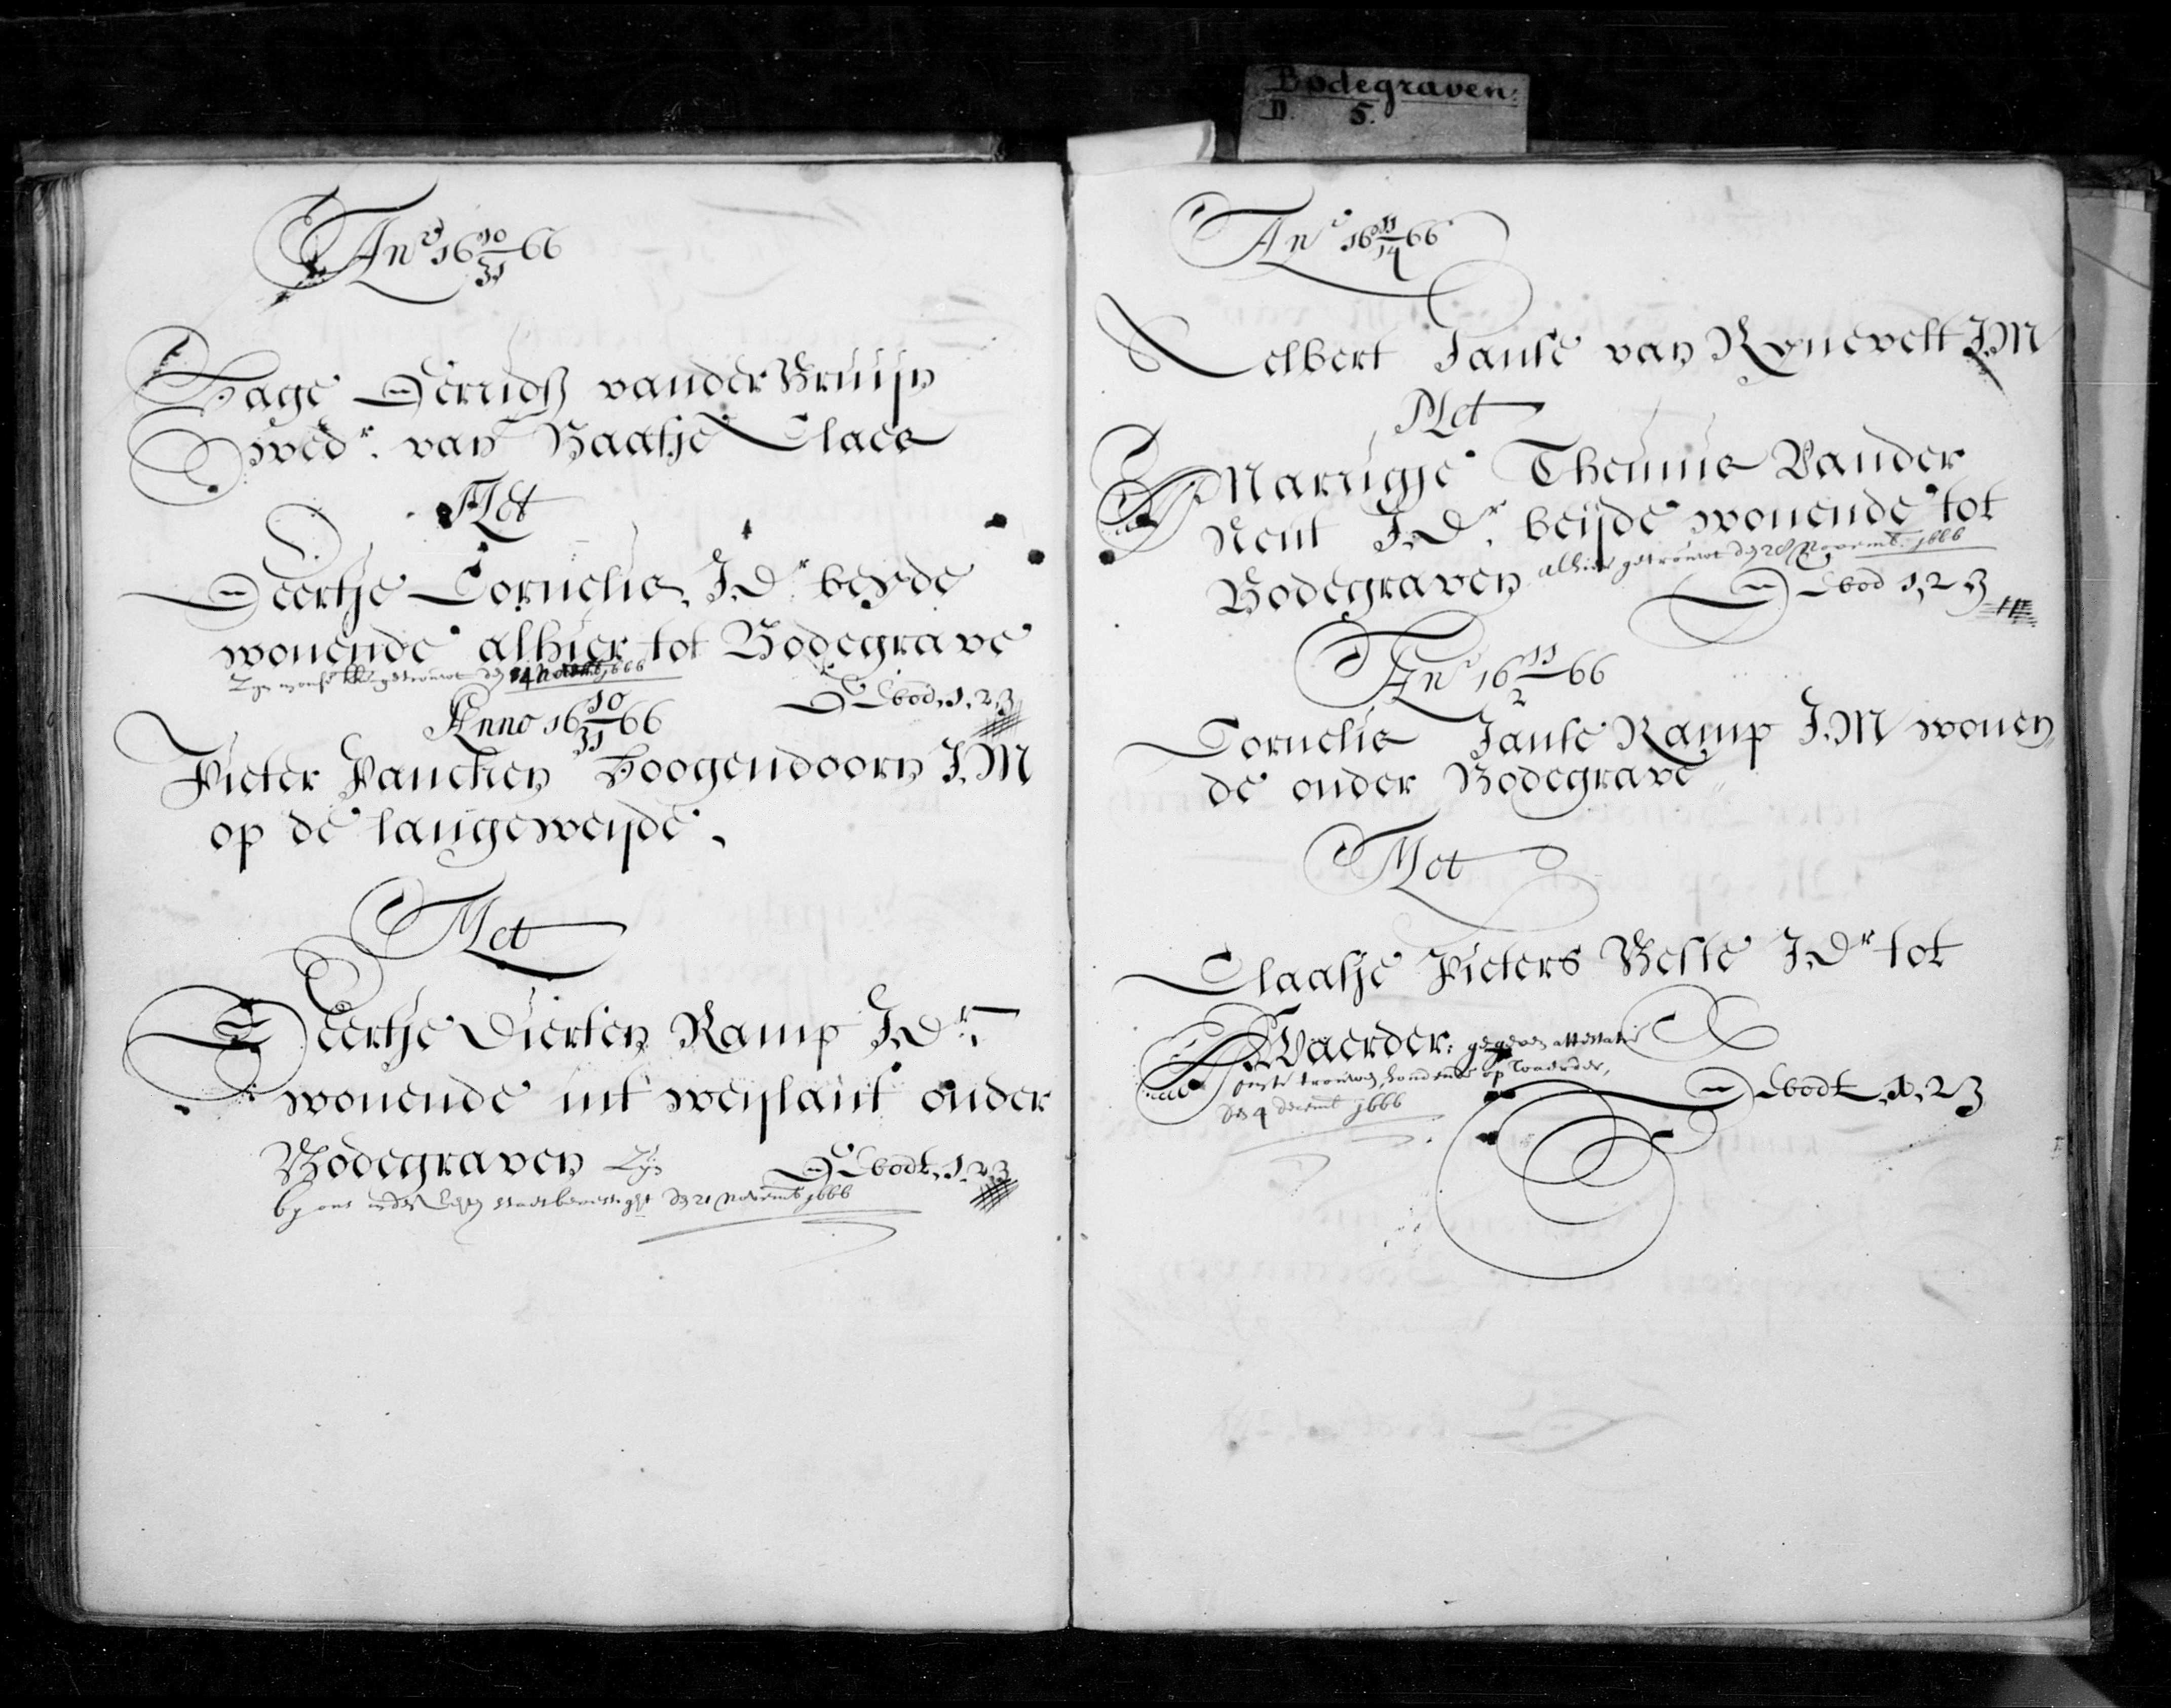 Bodegraven:
D. 5.
An° 16 10/31 66
Hage Gerridß vander Bruijn
wedr. van Baatje Claes
Met
Geertje Cornelis J.Dr beyde
wonende alhier tot Bodegrave
Zyn getrouwt 1666
Gebod, 1, 2, 3
Anno 16 10/31 66
Pieter Hoogendoorn J.M
op de langeweijde,
Met
Geertje Dierten Ramp J.Dr.
wonende int weijlant onder
Bodegraven Zijn
Gebodt, 1, 2, 3
by ons in der bevesticht den 21 Novemb 1666
An° 16 11/14 66
Elbert Janse van Rynevelt J.M
Met
Marrigje Theunis Vander
Neut J.Dr. beijde wonende tot
Bodegraven alhier getrouwt den 28 Novemb. 1666
Gebod 1, 2 3
An° 16 11/2 66
Cornelis Janse Ramp J.M wonen
de onder Bodegrave
Met
Claasje Pieters Besse J.Dr tot
Waerder: gegeven attestatie
omte trouwen, op Waerder,
den 4 decemb 1666
Gebodt, 1, 2 3